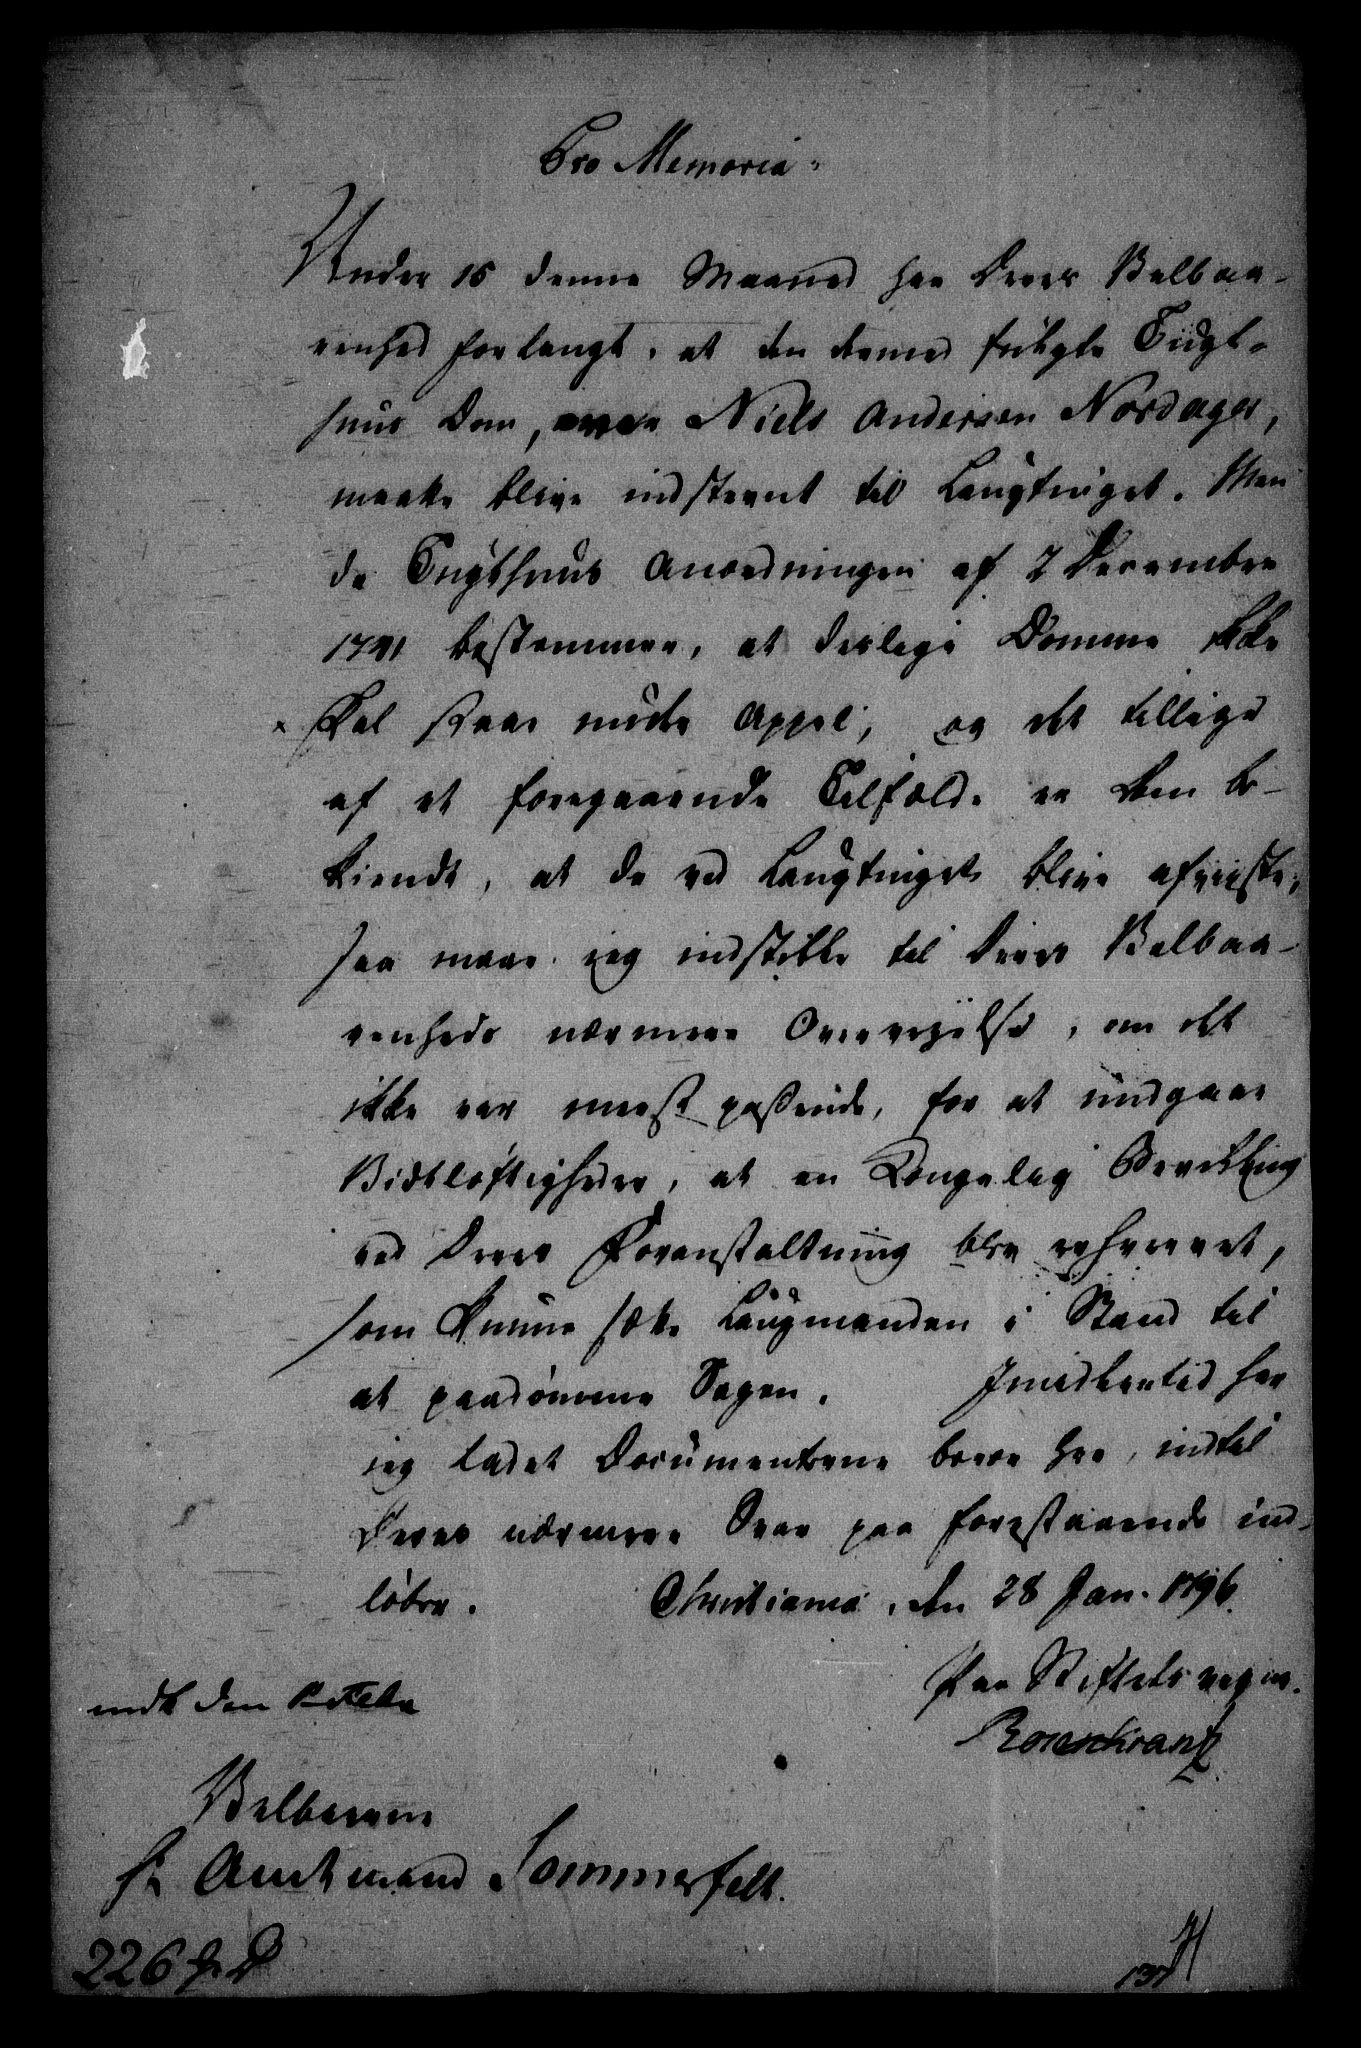 Pro Memoria.
Under 15 denne Maaned har Deres Velbaa-
renhed forlangt, at den derved fulgte Tugt-
huus Dom, over Niels Andersen Nordager,
maatte blive indstevnt til Laugtinget. Men
da Tugthuus Anordningen af 2 December
1741 bestemmer, at deslige Domme ikke
skal staae under Appel, og det tillige
af et foregaaende Tilfælde er Dem be-
kiendt, at de ved Laugtinget blive afviiste,
saa maae jeg indstille til Deres Velbaa-
renheds nærmere Overveyelse, om det
ikke var meest passende, for at undgaae
Vidtløftigheder, at en Kongelig Bevilling
ved Deres Foranstaltning blev erhvervet,
som kunne sætte Laugmanden i Stand til
at paadømme Sagen. Imidlertid har
jeg ladet Documenterne beroe her, indtil
Deres nærmere Svar paa forestaaende ind-
løber. Christiania, den 28 Jan. 1796.
Paa Stiftets vegne.
Rosenkrantz
indk den
Velbaarne
Hr Amtmand Sommerfelt.
226
137